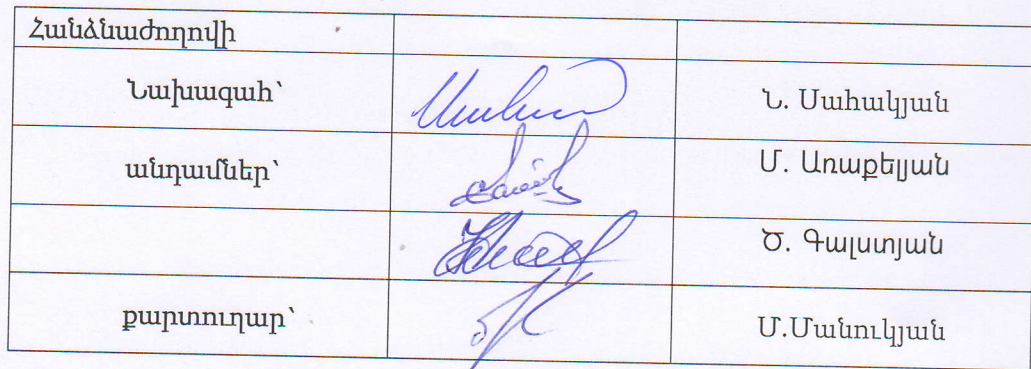 Հանձնաժողովի
Նախագահ՝ Ն. Սահակյան
անդամներ՝ Մ. Առաքելյան
Ծ. Գալստյան
քարտուղար՝ Մ.Մանուկյան